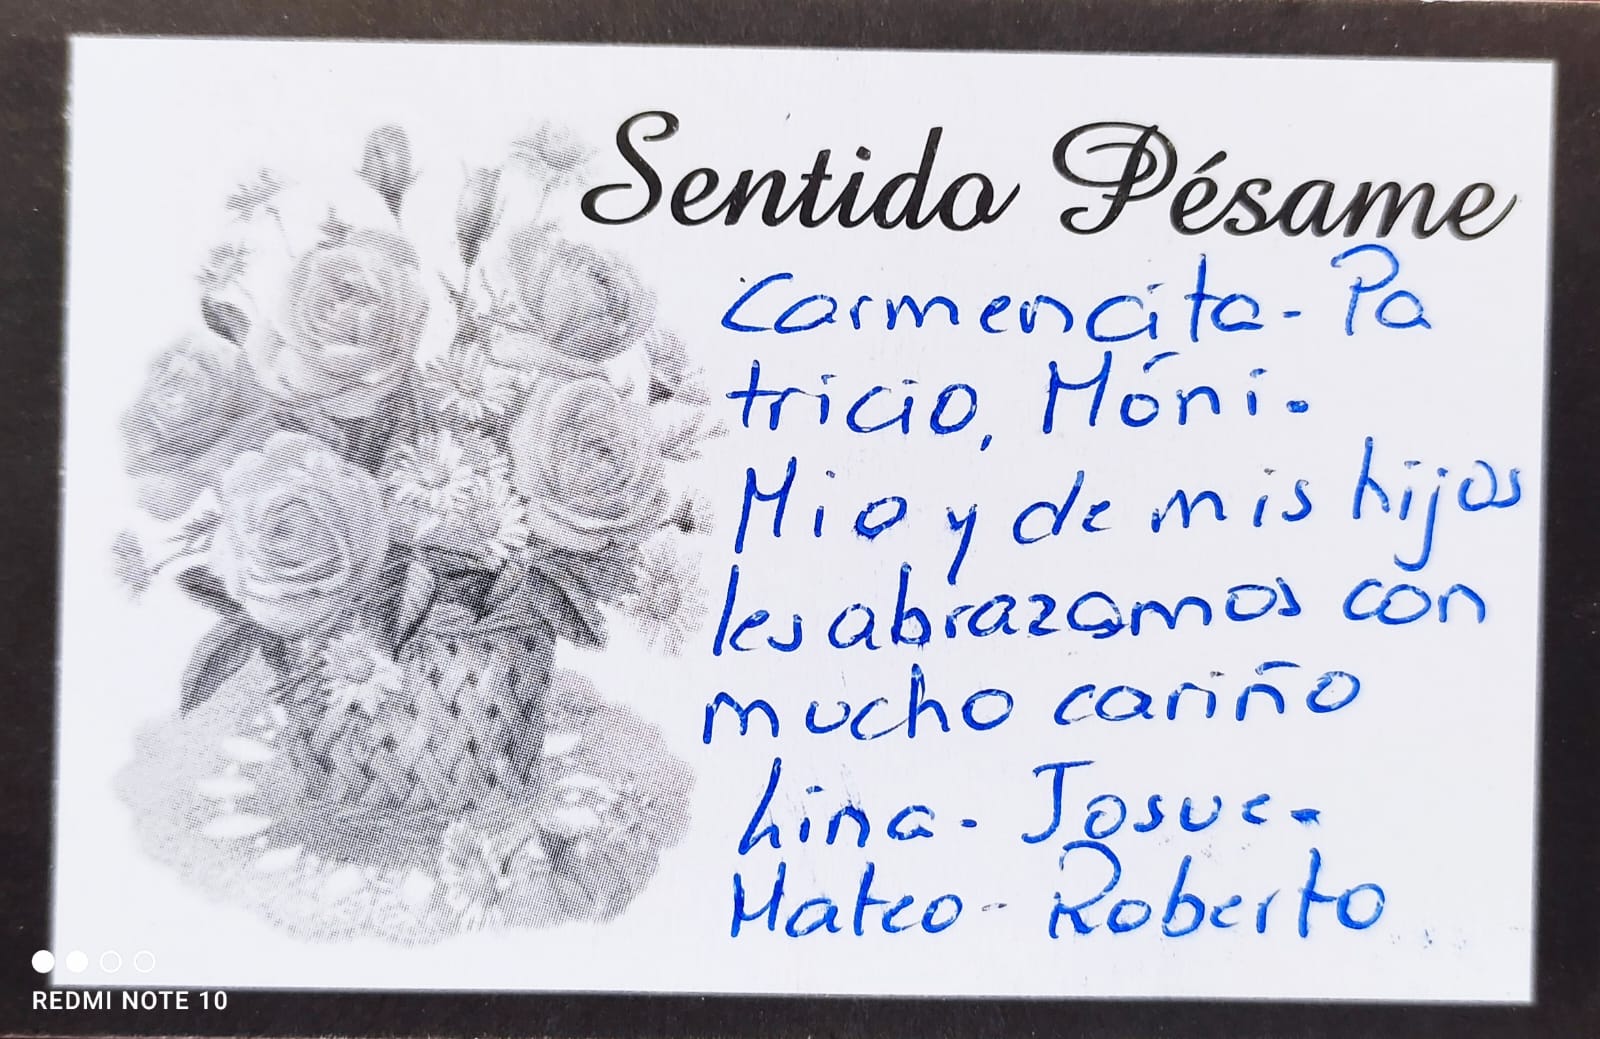 Sentido Pésame
Carmencita - Pa
tricio, Móni.
Mio y de mis hijos
les abrazamos con
mucho cariño
Lina - Josue -
Mateo - Roberto
REDMI NOTE 10